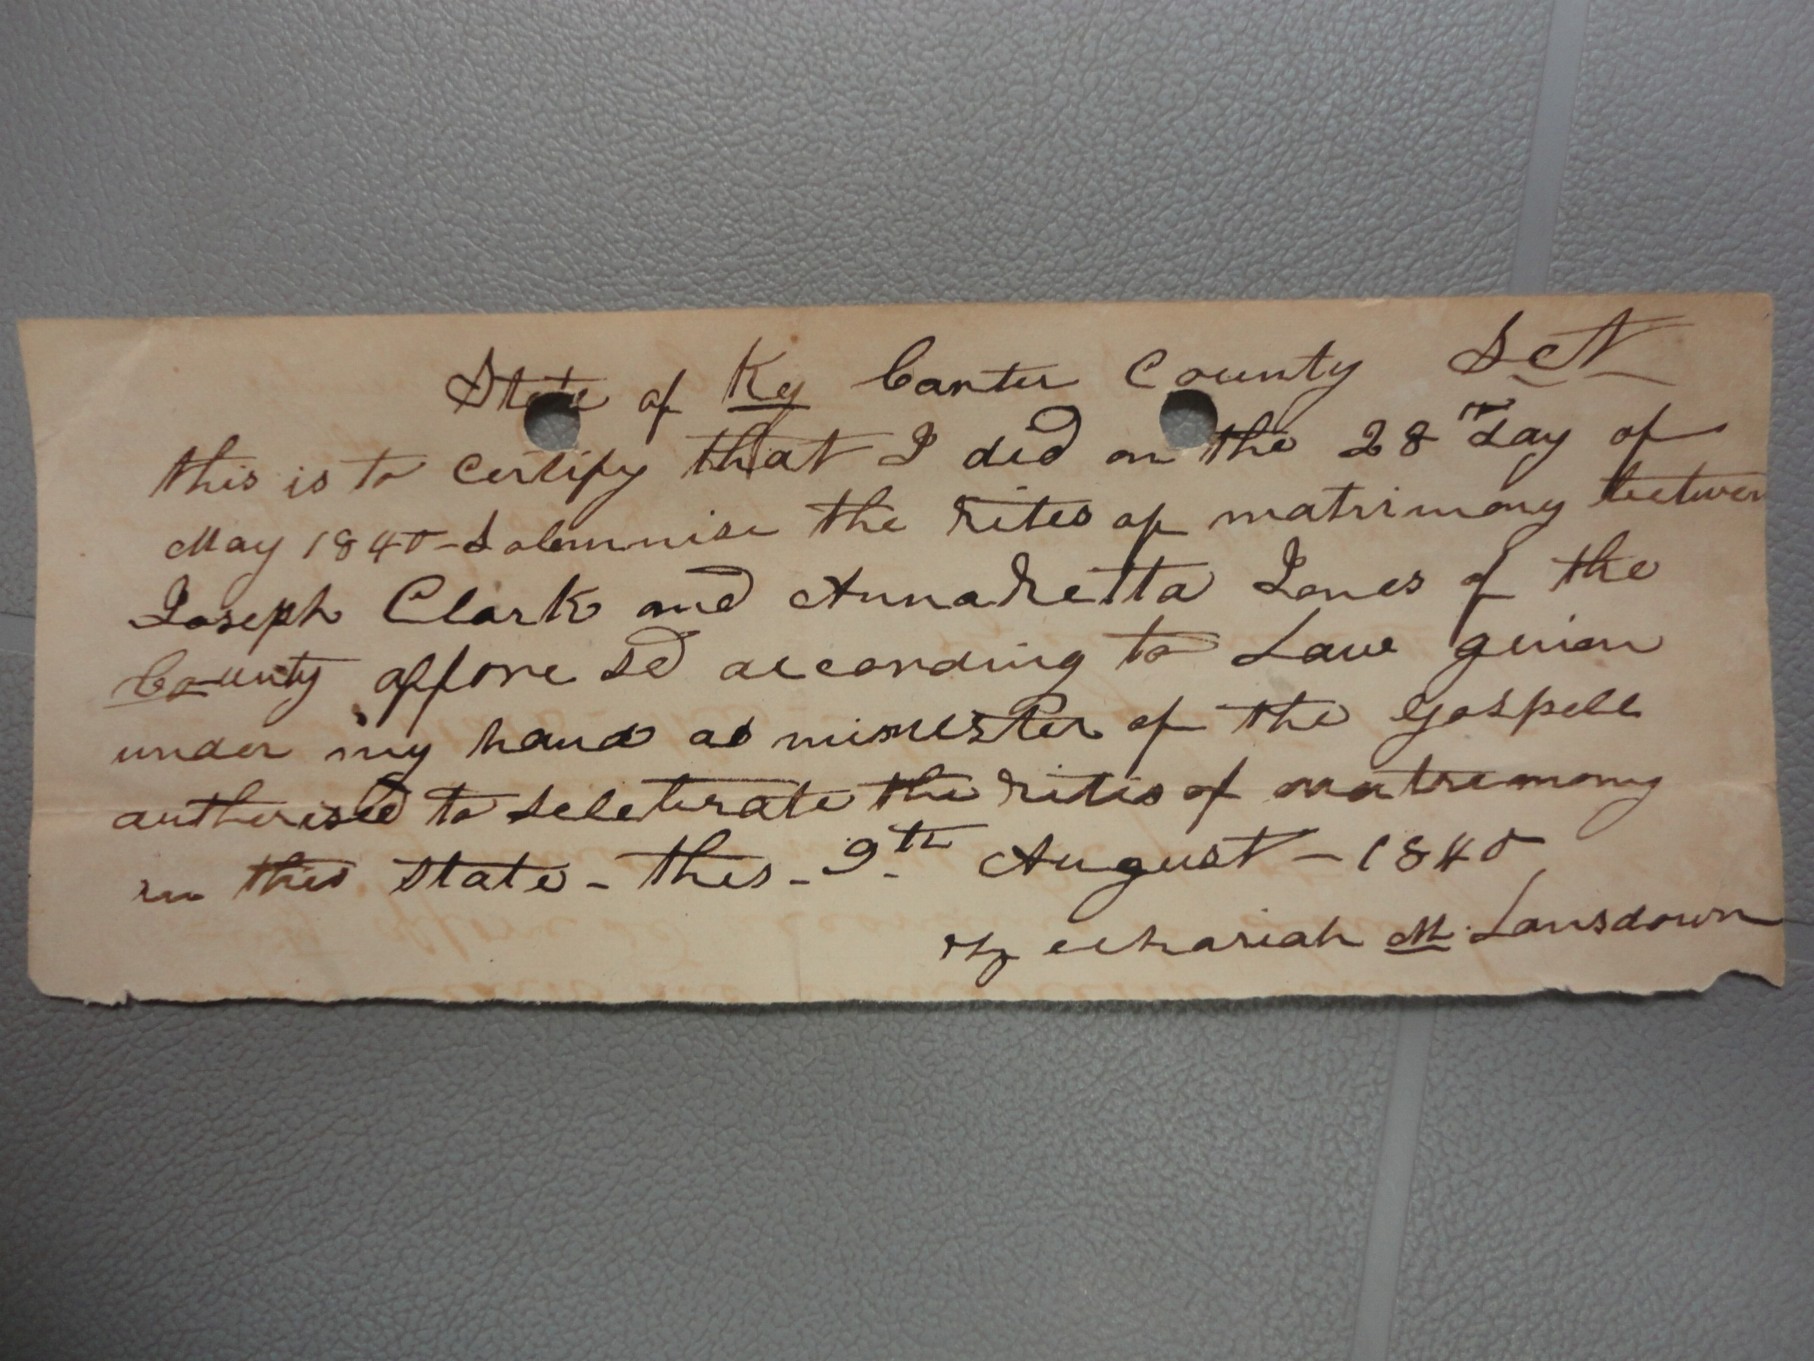 State of Ky Carter County Sct
this is to certify that I did on the 28th day of
May 1840 - Solemnise the rites of matrimony between
Joseph Clark and Annaretta Jones of the
County affore sd according to Law givien
under my hand as minester of the Gospell
autherised to selebrate the rites of matremony
in this state - this - 9th August - 1840
Zechariah M Lansdown